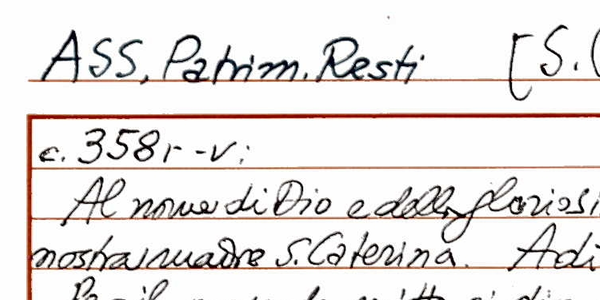 ASS, Patrim. Resti [S.
c. 358r-v:
Al nome di Dio e della gloriosi
nostra madre S. Caterina. Adi